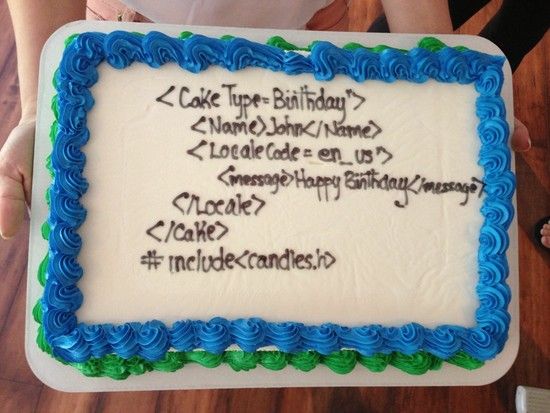 <Cake Type=Birthday">
<Name>John</Name>
<Locale Code=en_us">
<message>Happy Birthday</message>
</Locale>
</Cake>
# include<candles.h>